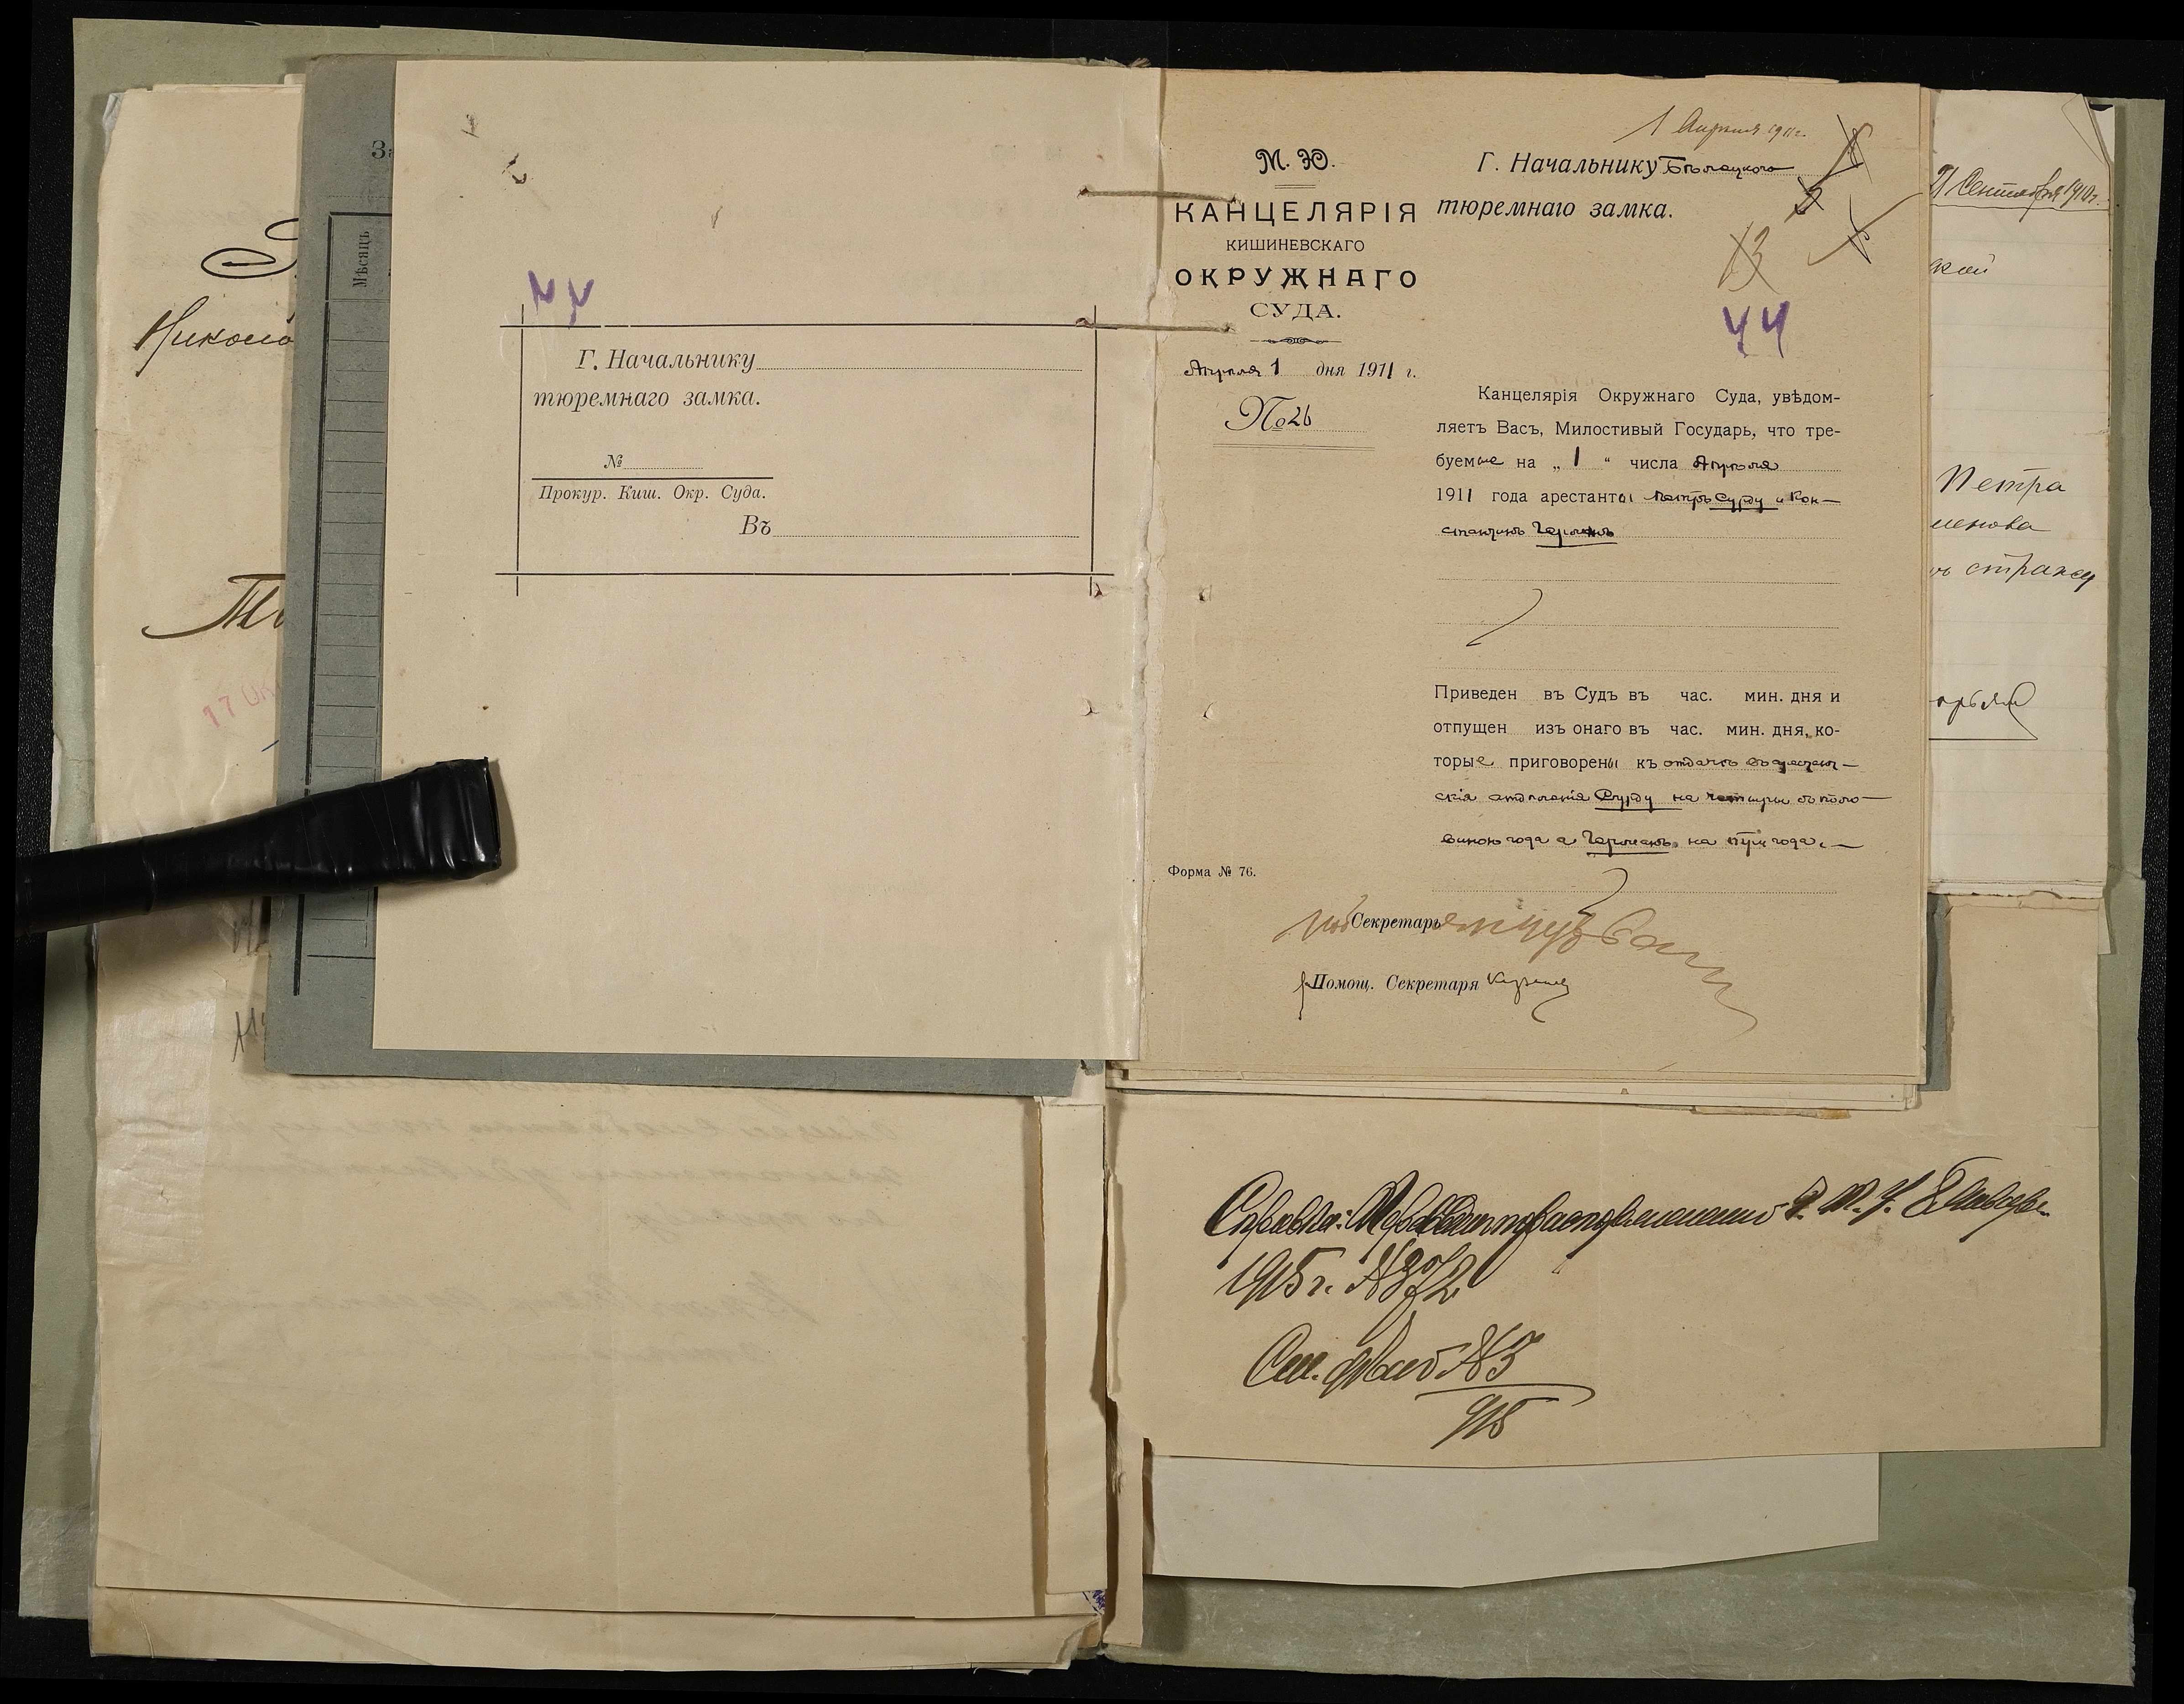 За
Мѣсяцъ
Г. Начальнику
тюремнаго замка.
№
Прокур. Киш. Окр. Суда.
Въ
1 Апреля 1911 г.
М. Ю.
КАНЦЕЛЯРІЯ
КИШИНЕВСКАГО
ОКРУЖНАГО
СУДА.
Апреля 1 дня 1911 г.
№ 26
Форма № 76.
Г. Начальнику Бѣлецкого
тюремнаго замка.
13
44
Канцелярія Окружнаго Суда, увѣдом-
ляетъ Васъ, Милостивый Государь, что тре-
буемые на „ 1 “ числа Апреля
1911 года арестанты Петръ Сурду и Кон-
стантинъ Германъ
Приведен въ Судъ въ час. мин. дня и
отпущен изъ онаго въ час. мин. дня, ко-
торые приговорены къ отдачѣ въ арестант-
скія отдѣленія Сурду на четыре съ поло-
виною года а Германъ на три года.
Секретарь
Помощ. Секретаря
21 Сентября 1910 г.
ской
Петра
менова
стражи
17 ОК
Справка:
1915 г. №
См.
915